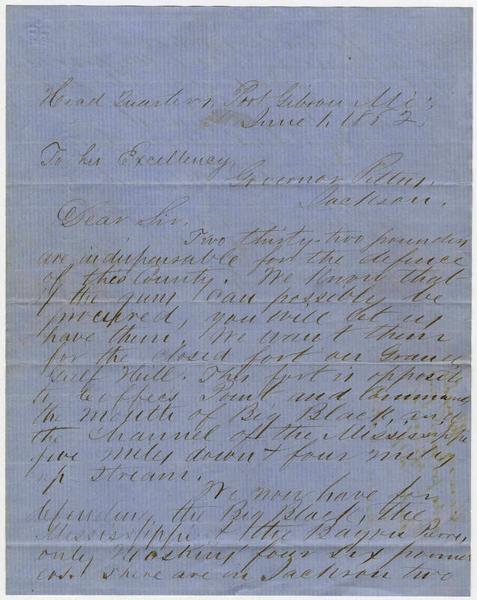 Head Quarters, Port Gibson Mi.
June 1, 1862
To his Excellency
Governor Pettus,
Jackson.
Dear Sir.
Two thirty-two pounders
are indispensable for the defence
of this County. We know that
if the guns can possibly be
procured, you will let us
have them. We want them
for the closed fort on Grand
Gulf Hill. This fort is opposite
to Coffees Point and Commands
the mouth of Big Black, and
the channel of the Mississippi
five miles down & four miles
up stream.
We now have for
defending the Big Black, the
Mississippi & the Bayou Pierre,
only four six pounders
There are in Jackson two